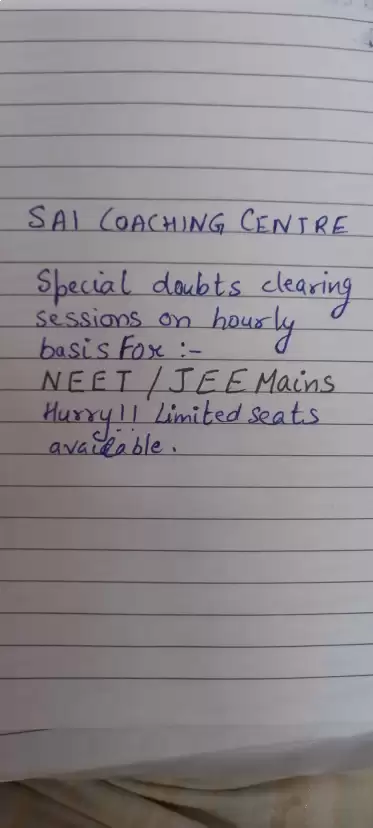 SAI COACHING CENTRE
Special doubts clearing
sessions on hourly
basis For :-
NEET / JEE Mains
Hurry!! Limited seats
available.